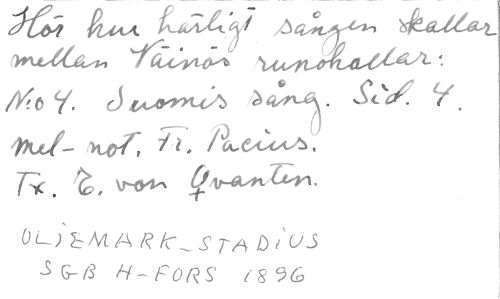 Hör hur härligt sången skallar
mellan Väinös runohallar:
N:o 4. Suomis sång. Sid. 4.
mel-not. Fr. Pacius.
Tx. E. von Qvanten.
ULJEMARK-STADIUS
SGB H-FORS 1896